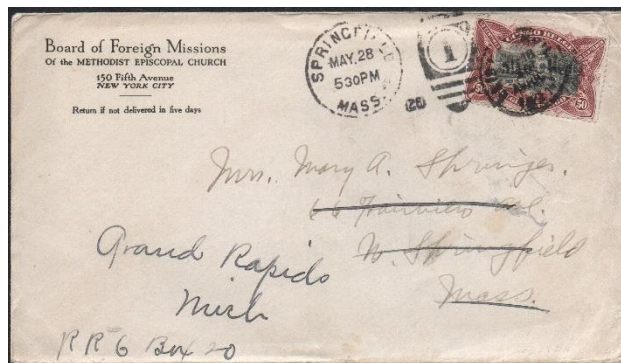 Board of Foreign Missions
Of the METHODIST EPISCOPAL CHURCH
150 Fifth Avenue
NEW YORK CITY
Return if not delivered in five days
SPRINGFIELD
MAY. 28
530PM
MASS.
1
CONGO BELGE
50
Mrs. Mary A. Springer.
66 Fairview Ave.
W. Springfield
Mass.
Grand Rapids
Mich
RR 6 Box 20